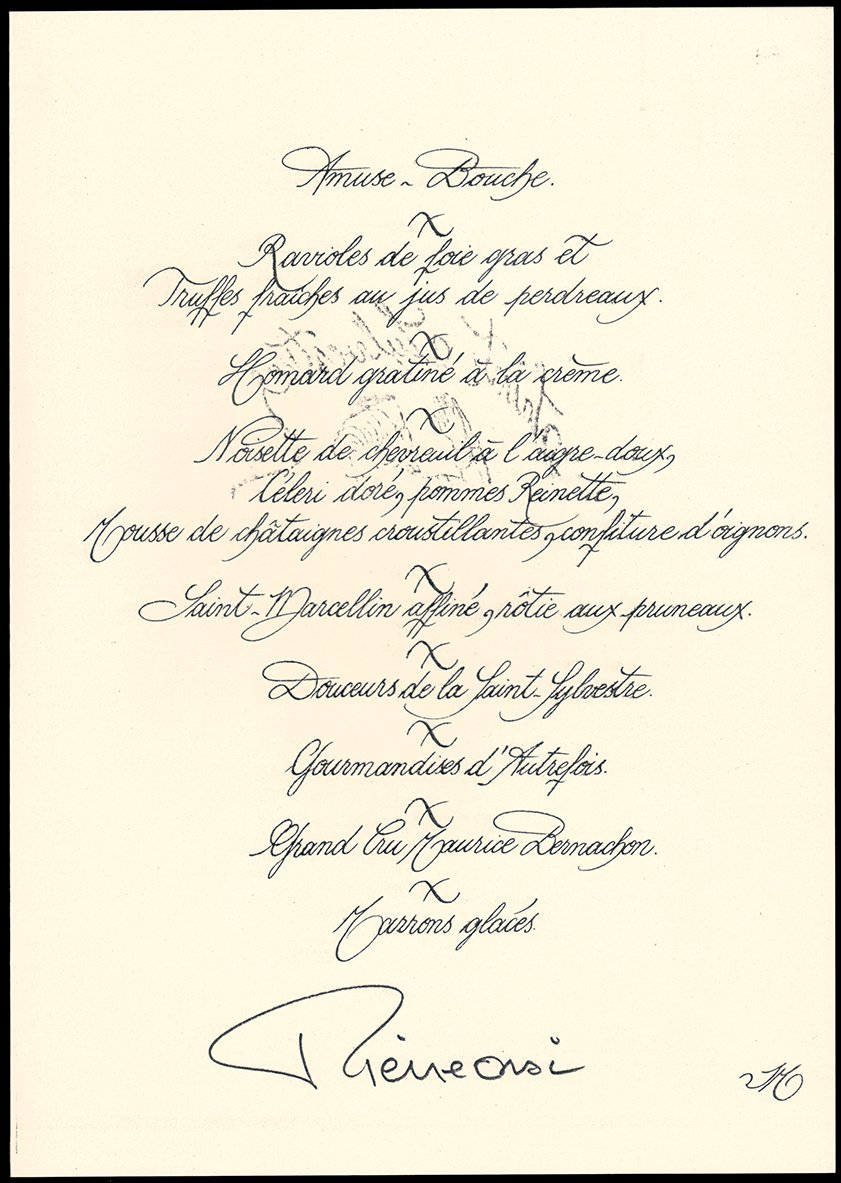 Amuse-Bouche.
Ravioles de foie gras et
Truffes fraîches au jus de perdreaux.
Homard gratiné à la crème.
Noisette de chevreuil à l'aigre-doux,
Céleri doré, pommes Reinette,
Mousse de châtaignes croustillantes, confiture d'oignons.
Saint-Marcellin affiné, rôtie aux pruneaux.
Douceurs de la Saint-Sylvestre.
Gourmandises d'Autrefois.
Grand Cru Maurice Bernachon.
Marrons glacés.
Pierre Orsi